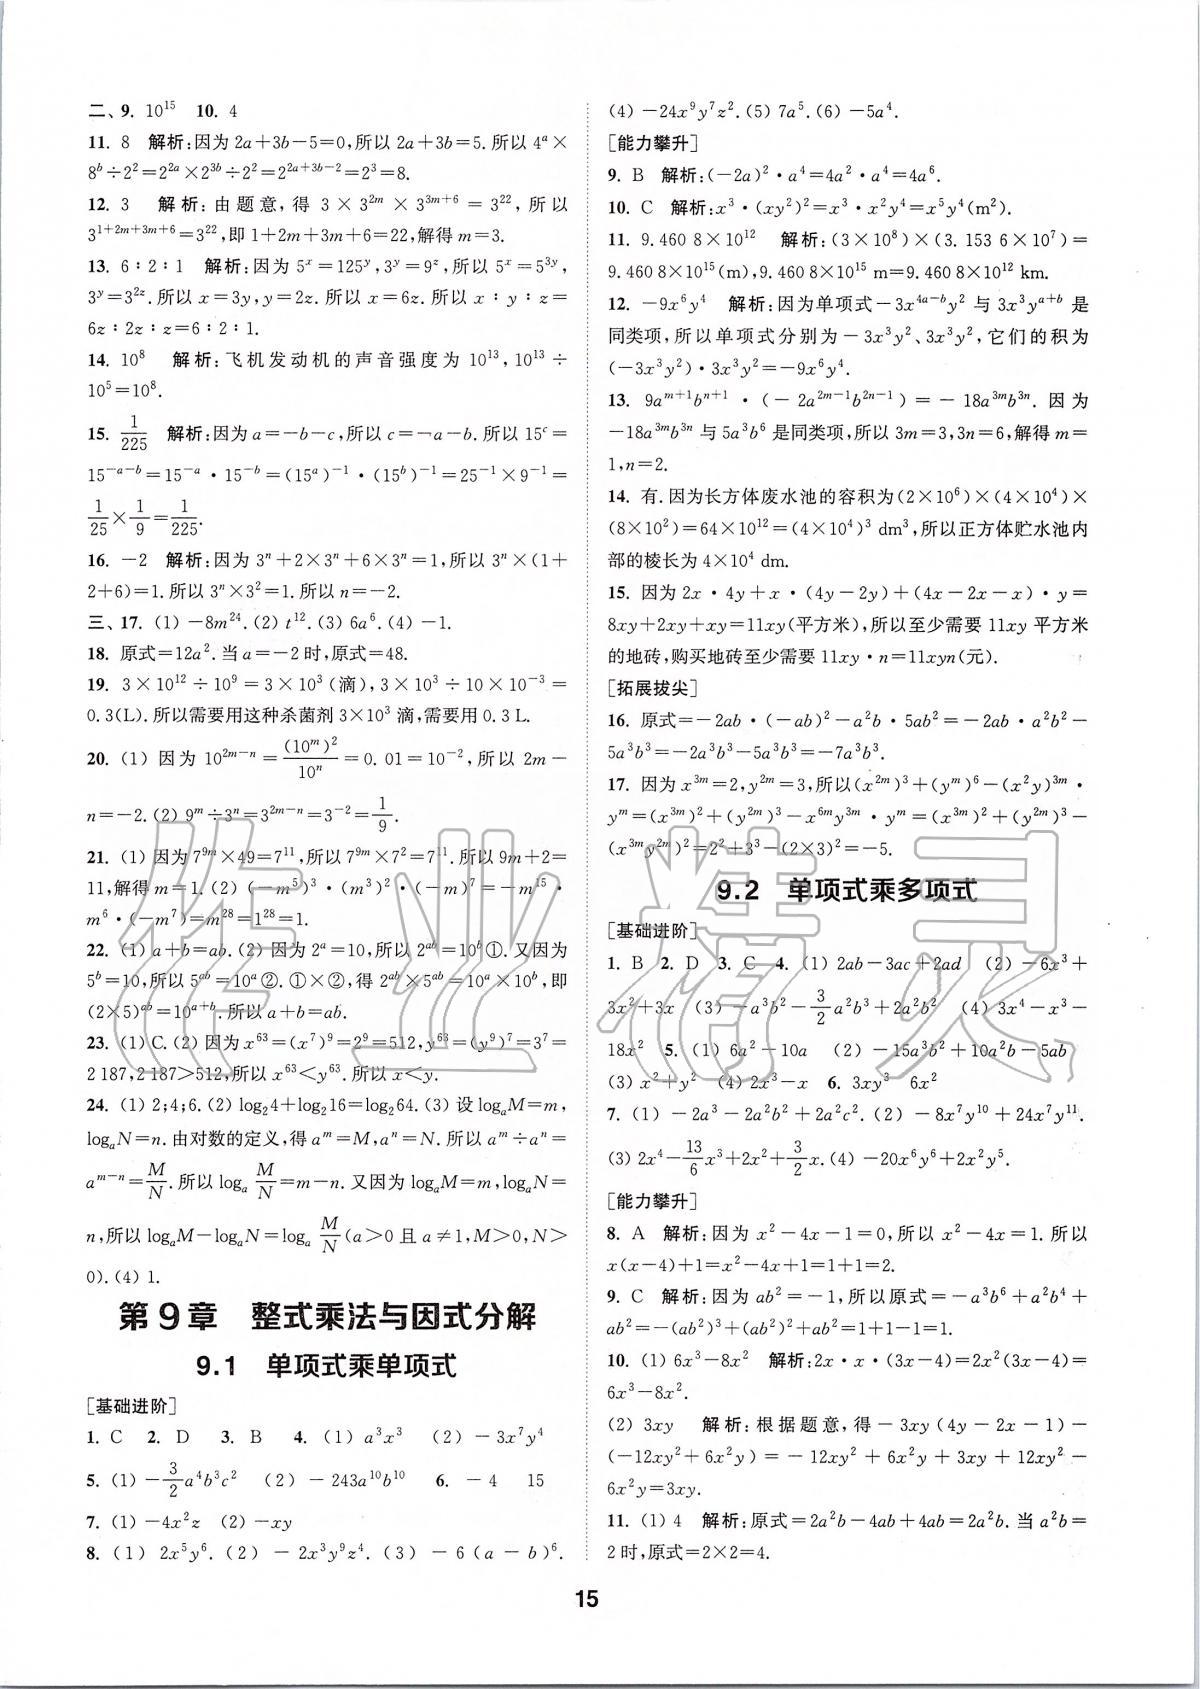 二、9. 10¹⁵ 10. 4
11. 8 解析:因为 2a+3b−5=0,所以 2a+3b=5.所以 4ᵃ×
8ᵇ÷2²=2²ᵃ×2³ᵇ÷2²=2²ᵃ⁺³ᵇ⁻²=2³=8.
12. 3 解析:由题意,得 3×3^{2m}×3^{3m+6}=3^{22},所以
3^{1+2m+3m+6}=3^{22},即 1+2m+3m+6=22,解得 m=3.
13. 6∶2∶1 解析:因为 5^x=125^y,3^y=9^z,所以 5^x=5^{3y},
3^y=3^{2z}.所以 x=3y,y=2z.所以 x=6z.所以 x∶y∶z=
6z∶2z∶z=6∶2∶1.
14. 10⁸ 解析:飞机发动机的声音强度为 10¹³,10¹³÷
10⁵=10⁸.
15. 1/225 解析:因为 a=−b−c,所以 c=−a−b.所以 15^c=
15^{−a−b}=15^{−a}·15^{−b}=(15^a)^{−1}·(15^b)^{−1}=25^{−1}×9^{−1}=
1/25×1/9=1/225.
16. −2 解析:因为 3ⁿ+2×3ⁿ+6×3ⁿ=1,所以 3ⁿ×(1+
2+6)=1.所以 3ⁿ×3²=1.所以 n=−2.
三、17. (1) −8m²⁴.(2) t¹².(3) 6a⁶.(4) −1.
18. 原式=12a².当 a=−2 时,原式=48.
19. 3×10¹²÷10⁹=3×10³(滴),3×10³÷10×10⁻³=
0.3(L).所以需要用这种杀菌剂 3×10³ 滴,需要用 0.3 L.
20. (1) 因为 10^{2m−n}=(10^m)²/10^n=0.01=10⁻²,所以 2m−
n=−2.(2) 9^m÷3^n=3^{2m−n}=3⁻²=1/9.
21. (1) 因为 7^{9m}×49=7¹¹,所以 7^{9m}×7²=7¹¹.所以 9m+2=
11,解得 m=1.(2) (−m⁵)³·(m³)²·(−m)⁷=−m¹⁵·
m⁶·(−m⁷)=m²⁸=1²⁸=1.
22. (1) a+b=ab.(2) 因为 2^a=10,所以 2^{ab}=10^b①.又因为
5^b=10,所以 5^{ab}=10^a②.①×②,得 2^{ab}×5^{ab}=10^a×10^b,即
(2×5)^{ab}=10^{a+b}.所以 a+b=ab.
23. (1) C.(2) 因为 x⁶³=(x⁷)⁹=2⁹=512,y⁶³=(y⁹)⁷=3⁷=
2 187,2 187>512,所以 x⁶³<y⁶³.所以 x<y.
24. (1) 2;4;6.(2) log₂4+log₂16=log₂64.(3) 设 logₐM=m,
logₐN=n.由对数的定义,得 a^m=M,a^n=N.所以 a^m÷a^n=
a^{m−n}=M/N.所以 logₐ M/N=m−n.又因为 logₐM=m,logₐN=
n,所以 logₐM−logₐN=logₐ M/N(a>0 且 a≠1,M>0,N>
0).(4) 1.
第 9 章 整式乘法与因式分解
9.1 单项式乘单项式
[基础进阶]
1. C 2. D 3. B 4. (1) a³x³ (2) −3x⁷y⁴
5. (1) −3/2a⁴b³c² (2) −243a¹⁰b¹⁰ 6. −4 15
7. (1) −4x²z (2) −xy
8. (1) 2x⁵y⁶.(2) −2x³y⁹z⁴.(3) −6(a−b)⁶.
(4) −24x⁹y⁷z².(5) 7a⁵.(6) −5a⁴.
[能力攀升]
9. B 解析:(−2a)²·a⁴=4a²·a⁴=4a⁶.
10. C 解析:x³·(xy²)²=x³·x²y⁴=x⁵y⁴(m²).
11. 9.460 8×10¹² 解析:(3×10⁸)×(3.153 6×10⁷)=
9.460 8×10¹⁵(m),9.460 8×10¹⁵ m=9.460 8×10¹² km.
12. −9x⁶y⁴ 解析:因为单项式−3x^{4a−b}y² 与 3x³y^{a+b} 是
同类项,所以单项式分别为−3x³y²、3x³y²,它们的积为
(−3x³y²)·3x³y²=−9x⁶y⁴.
13. 9a^{m+1}b^{n+1}·(−2a^{2m−1}b^{2n−1})=−18a^{3m}b^{3n}.因为
−18a^{3m}b^{3n} 与 5a³b⁶ 是同类项,所以 3m=3,3n=6,解得 m=
1,n=2.
14. 有.因为长方体废水池的容积为(2×10⁶)×(4×10⁴)×
(8×10²)=64×10¹²=(4×10⁴)³ dm³,所以正方体贮水池内
部的棱长为 4×10⁴ dm.
15. 因为 2x·4y+x·(4y−2y)+(4x−2x−x)·y=
8xy+2xy+xy=11xy(平方米),所以至少需要 11xy 平方米
的地砖,购买地砖至少需要 11xy·n=11xyn(元).
[拓展拔尖]
16. 原式=−2ab·(−ab)²−a²b·5ab²=−2ab·a²b²−
5a³b³=−2a³b³−5a³b³=−7a³b³.
17. 因为 x^{3m}=2,y^{2m}=3,所以(x^{2m})³+(y^m)⁶−(x²y)^{3m}·
y^m=(x^{3m})²+(y^{2m})³−x^{6m}y^{3m}·y^m=(x^{3m})²+(y^{2m})³−
(x^{3m}y^{2m})²=2²+3³−(2×3)²=−5.
9.2 单项式乘多项式
[基础进阶]
1. B 2. D 3. C 4. (1) 2ab−3ac+2ad (2) −6x³+
3x²+3x (3) −a³b²−3/2a²b³+2a²b² (4) 3x⁴−x³−
18x² 5. (1) 6a²−10a (2) −15a³b²+10a²b−5ab
(3) x²+y² (4) 2x³−x 6. 3xy³ 6x²
7. (1) −2a³−2a²b²+2a²c².(2) −8x⁷y¹⁰+24x⁷y¹¹.
(3) 2x⁴−13/6x³+2x²+3/2x.(4) −20x⁶y⁶+2x²y⁵.
[能力攀升]
8. A 解析:因为 x²−4x−1=0,所以 x²−4x=1.所以
x(x−4)+1=x²−4x+1=1+1=2.
9. C 解析:因为 ab²=−1,所以原式=−a³b⁶+a²b⁴+
ab²=−(ab²)³+(ab²)²+ab²=1+1−1=1.
10. (1) 6x³−8x² 解析:2x·x·(3x−4)=2x²(3x−4)=
6x³−8x².
(2) 3xy 解析:根据题意,得−3xy(4y−2x−1)−
(−12xy²+6x²y)=−12xy²+6x²y+3xy+12xy²−
6x²y=3xy.
11. (1) 4 解析:原式=2a²b−4ab+4ab=2a²b.当 a²b=
2 时,原式=2×2=4.
15
作业精灵